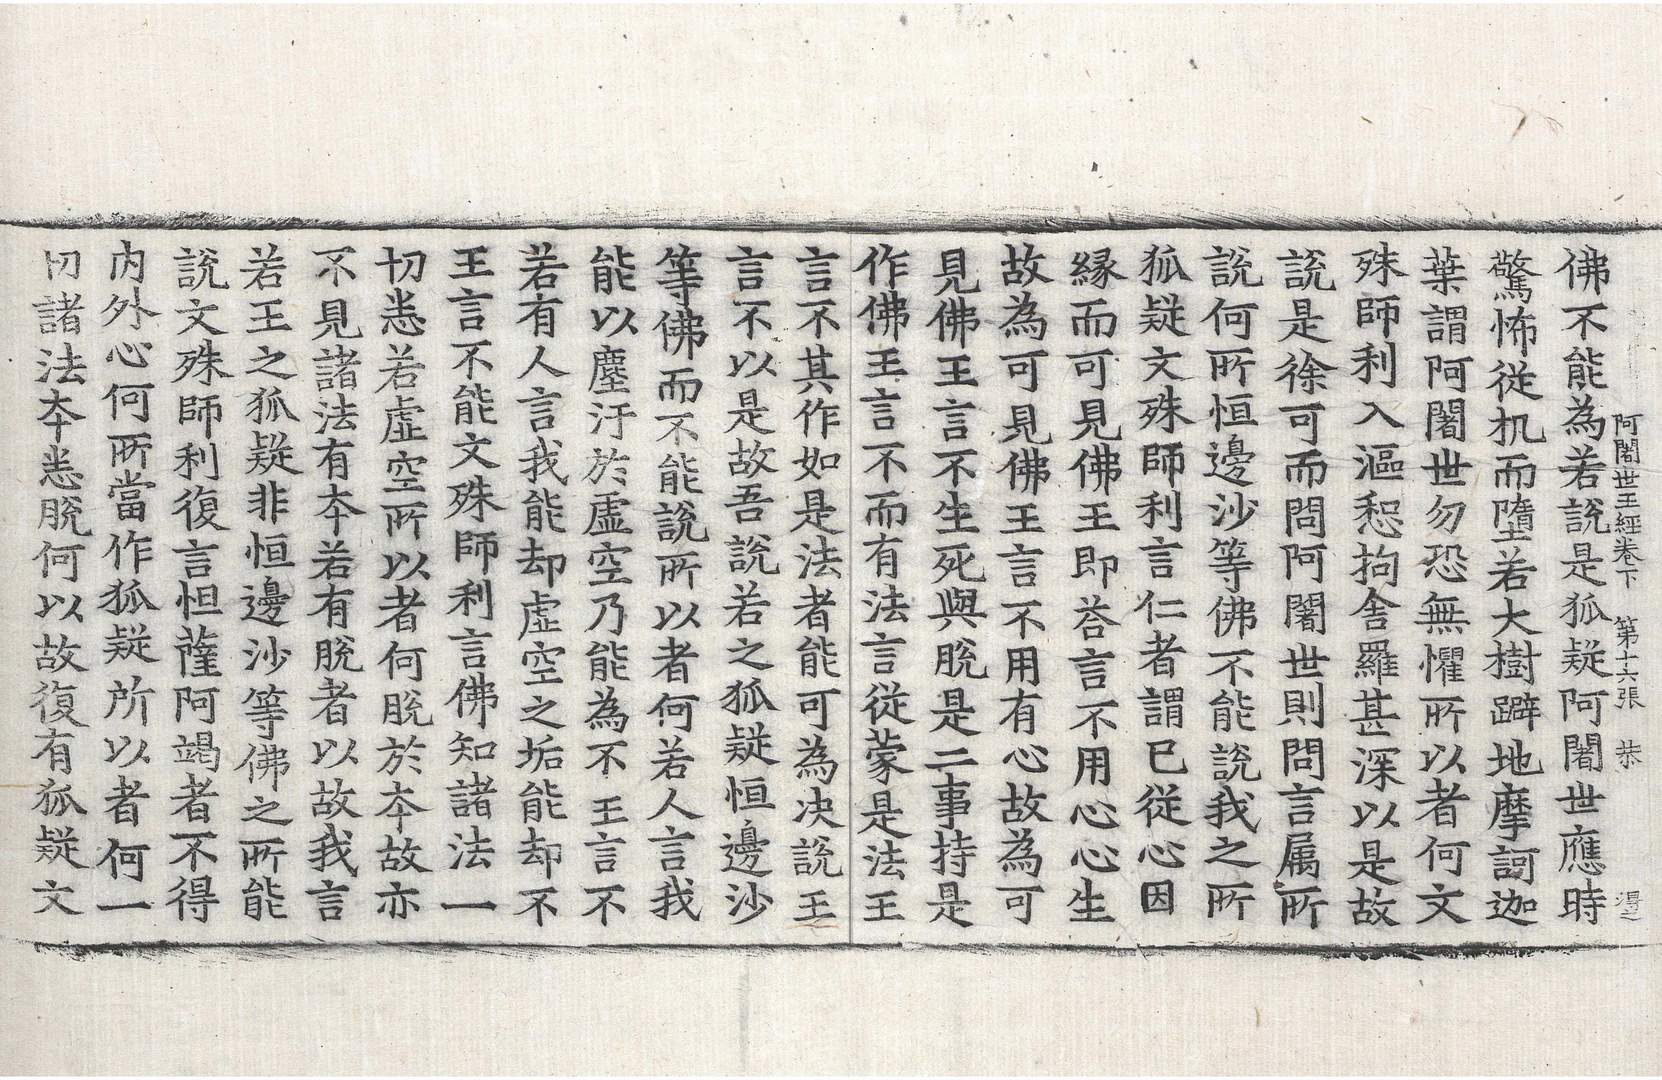 阿闍世王經卷下　第十六張　恭
得之
佛不能為若說是狐疑阿闍世應時
驚怖從机而墮若大樹躃地摩訶迦
葉謂阿闍世勿恐無懼所以者何文
殊師利入漚惒拘舍羅甚深以是故
說是徐可而問阿闍世則問言属所
說何所恒邊沙等佛不能說我之所
狐疑文殊師利言仁者謂已從心因
緣而可見佛王即荅言不用心心生
故為可見佛王言不用有心故為可
見佛王言不生死與脫是二事持是
作佛王言不而有法言從蒙是法王
言不其作如是法者能可為决說王
言不以是故吾說若之狐疑恒邊沙
等佛而不能說所以者何若人言我
能以塵汙於虛空乃能為不王言不
若有人言我能却虛空之垢能却不
王言不能文殊師利言佛知諸法一
切悉若虛空所以者何脫於夲故亦
不見諸法有夲若有脫者以故我言
若王之狐疑非恒邊沙等佛之所能
說文殊師利復言怛薩阿竭者不得
內外心何所當作狐疑所以者何一
切諸法夲悉脫何以故復有狐疑文